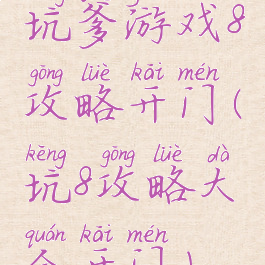 坑爹游戏8
gōng lüè kāi mén
攻略开门(
kēng gōng lüè dà
坑8攻略大
quán kāi mén
全开门)